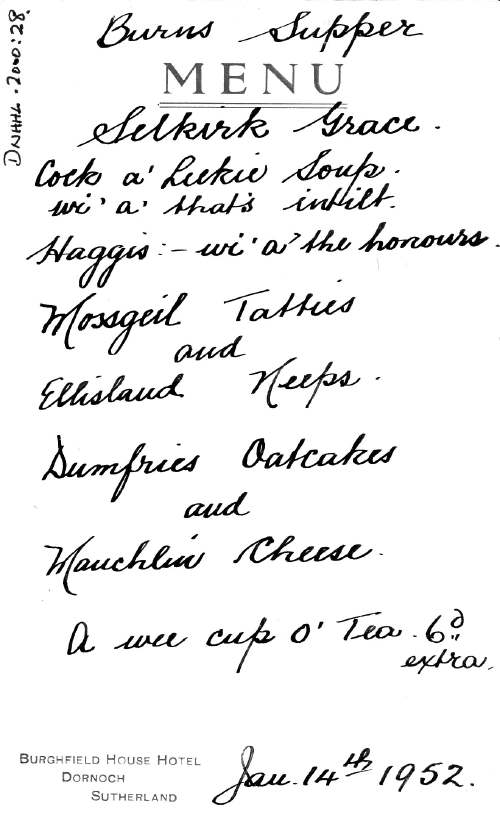 DNHHL·2000:28
Burns Supper
MENU
Selkirk Grace.
Cock a' Leekie Soup.
wi' a' that's intilt.
Haggis:- wi' a' the honours.
Mossgeil Tatties
and
Ellisland Neeps.
Dumfries Oatcakes
and
Mauchlin Cheese.
A wee cup o' Tea. 6d
extra.
BURGHFIELD HOUSE HOTEL
DORNOCH
SUTHERLAND
Jan. 14th 1952.